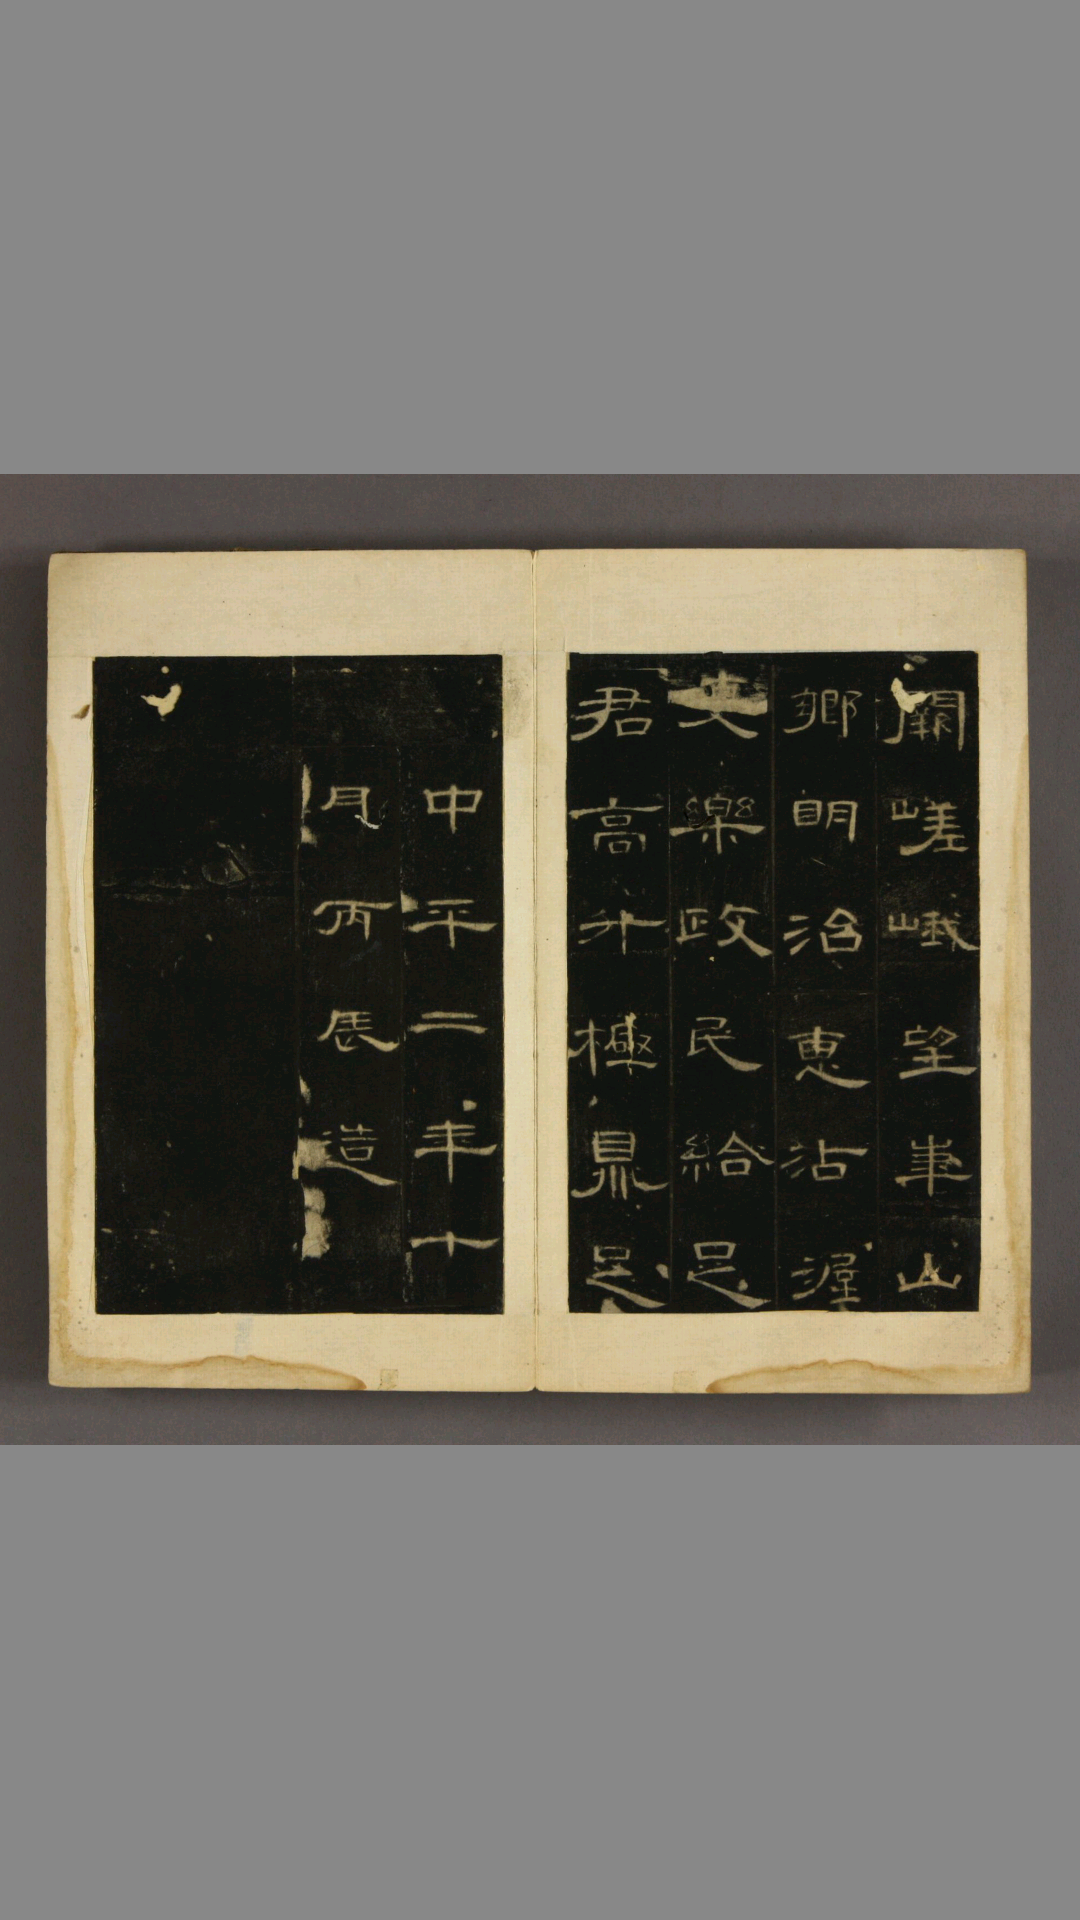 闕嵯峨望華山
鄉明治惠沾渥
吏樂政民給足
君高升極鼎足
中平二年十
月丙辰造